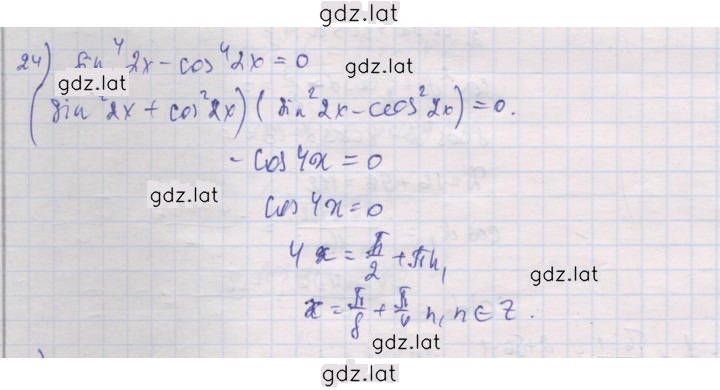 gdz.lat
24) sin⁴ 2x - cos⁴ 2x = 0
gdz.lat
gdz.lat
(sin² 2x + cos² 2x) (sin² 2x - cos² 2x) = 0.
- cos 4x = 0
gdz.lat
cos 4x = 0
4x = π/2 + πn,
gdz.lat
x = π/8 + π/4 n, n ∈ Z.
gdz.lat
gdz.lat